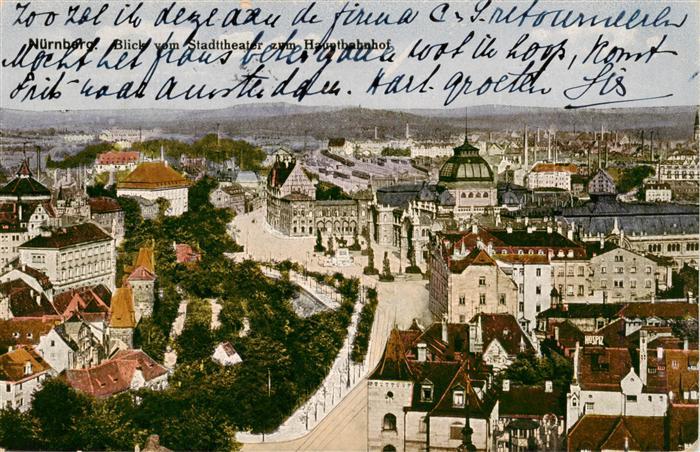 Zoo zal ik deze aan de firma C. S. retourneeren
Nürnberg. Blick vom Stadttheater zum Hauptbahnhof
Mocht het plaus wat ik hoop, komt
Frits naar Amsterdam. Hart. groeten
HOSPIZ